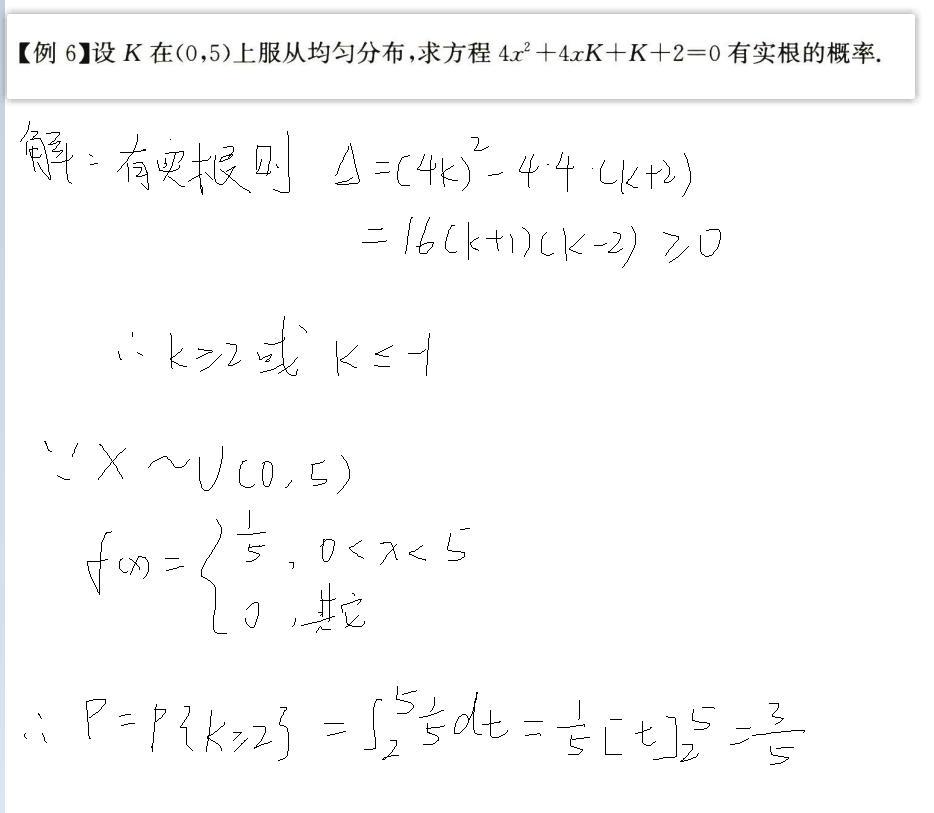 【例 6】设 K 在(0,5)上服从均匀分布,求方程 4x²+4xK+K+2=0 有实根的概率.
解: 有实根则 Δ=(4k)²-4·4·(k+2)
=16(k+1)(k-2)≥0
∴ k≥2或 k≤-1
∵ X~U(0,5)
f(x)={ 1/5, 0<x<5
0, 其它
∴ P=P{k≥2} =∫₂⁵ 1/5 dt = 1/5 [t]₂⁵ = 3/5